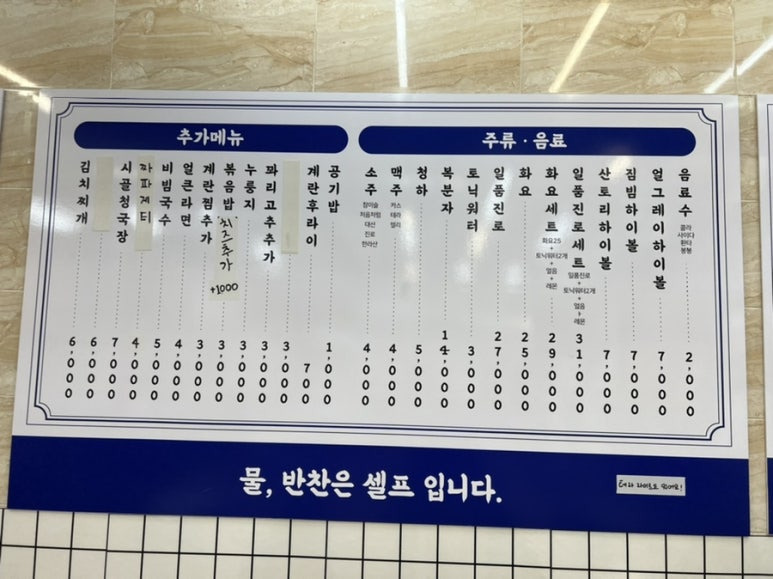 추가메뉴
김치찌개 6,000
6,000
시골청국장 7,000
짜파게티 4,000
비빔국수 5,000
얼큰라면 4,000
계란찜추가 3,000
볶음밥 치즈추가 +1000 3,000
누룽지 3,000
꽈리고추추가 3,000
3,000
계란후라이 700
공기밥 1,000
주류 · 음료
소주 참이슬 처음처럼 대선 진로 한라산 4,000
맥주 카스 테라 켈리 4,000
청하 5,000
복분자 14,000
토닉워터 3,000
일품진로 27,000
화요 25,000
화요세트 화요25 + 토닉워터2개 + 얼음 + 레몬 29,000
일품진로세트 일품진로 + 토닉워터2개 + 얼음 + 레몬 31,000
산토리하이볼 7,000
짐빔하이볼 7,000
얼그레이하이볼 7,000
음료수 콜라 사이다 환타 봉봉 2,000
물, 반찬은 셀프 입니다.
테라 라이트도 있어요!